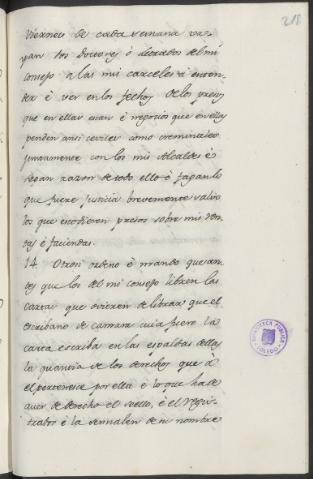 218
Viernes de cada semana va-
yan los Doctores, ó Abogados del mi
consejo á las mis carceles à enten-
der è ver en los fechos de los presos
que en ellas estan è negocios que en ellas
penden ansi ceviles como creminales
juntamente con los mis Alcaldes è
sepan razon de todo ello è fagan lo
que fuere justicia brevemente salvo
los que estovieren presos sobre mis ren-
tas è faciendas.
14. Otrosi ordeno è mando que an-
tes que los del mi consejo libren las
cartas que ovieren de librar que el
escribano de camara cuia fuere la
carta escriba en las espaldas dellas
la quantia de los derechos que à
el pertenesce por ella è lo que ha de
aver de derecho el sello, è el regis-
trador è la sennalen de su nombre
BIBLIOTECA PUBLICA
TOLEDO